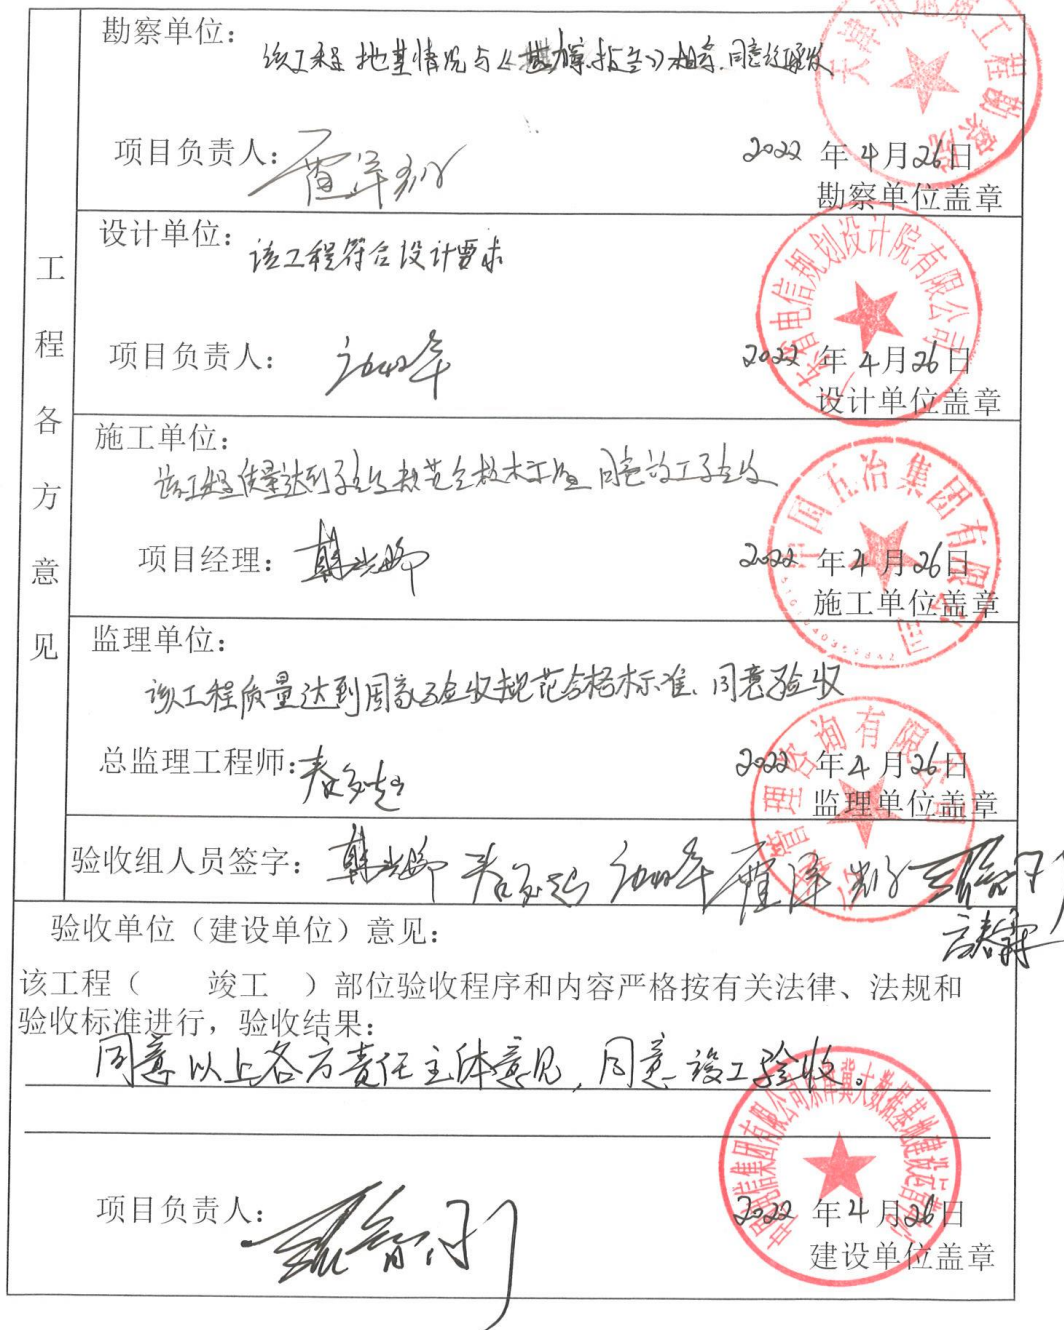 工程各方意见
勘察单位:
该工程地基情况与《勘察报告》相符.同意验收
项目负责人:
2022 年 4 月 26 日
勘察单位盖章
设计单位:
该工程符合设计要求
项目负责人:
2022 年 4 月 26 日
设计单位盖章
电信规划设计院有限公司
施工单位:
该工程质量达到验收规范合格标准 同意竣工验收
项目经理:
2022 年 4 月 26 日
施工单位盖章
中国五冶集团有限公司
监理单位:
该工程质量达到国家验收规范合格标准、同意验收
总监理工程师:
2022 年 4 月 26 日
监理单位盖章
管理咨询有限公司
验收组人员签字:
验收单位（建设单位）意见:
该工程（ 竣工 ）部位验收程序和内容严格按有关法律、法规和
验收标准进行，验收结果:
同意以上各方责任主体意见，同意竣工验收。
项目负责人:
2022 年 4 月 26 日
建设单位盖章